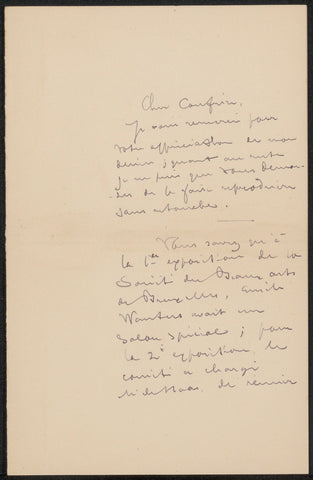 Cher Confrère,
Je vous remercie pour
votre appréciation de mon
dessin ; quant au reste
je ne puis que vous deman-
der de le faire reproduire
sans retouches.
Vous savez qu'à
la 1re exposition de la
Société des Beaux arts
de Bruxelles, Emile
Wauters avait un
salon spécial ; pour
la 2e exposition, le
comité a chargé
Mr de Haas de réunir